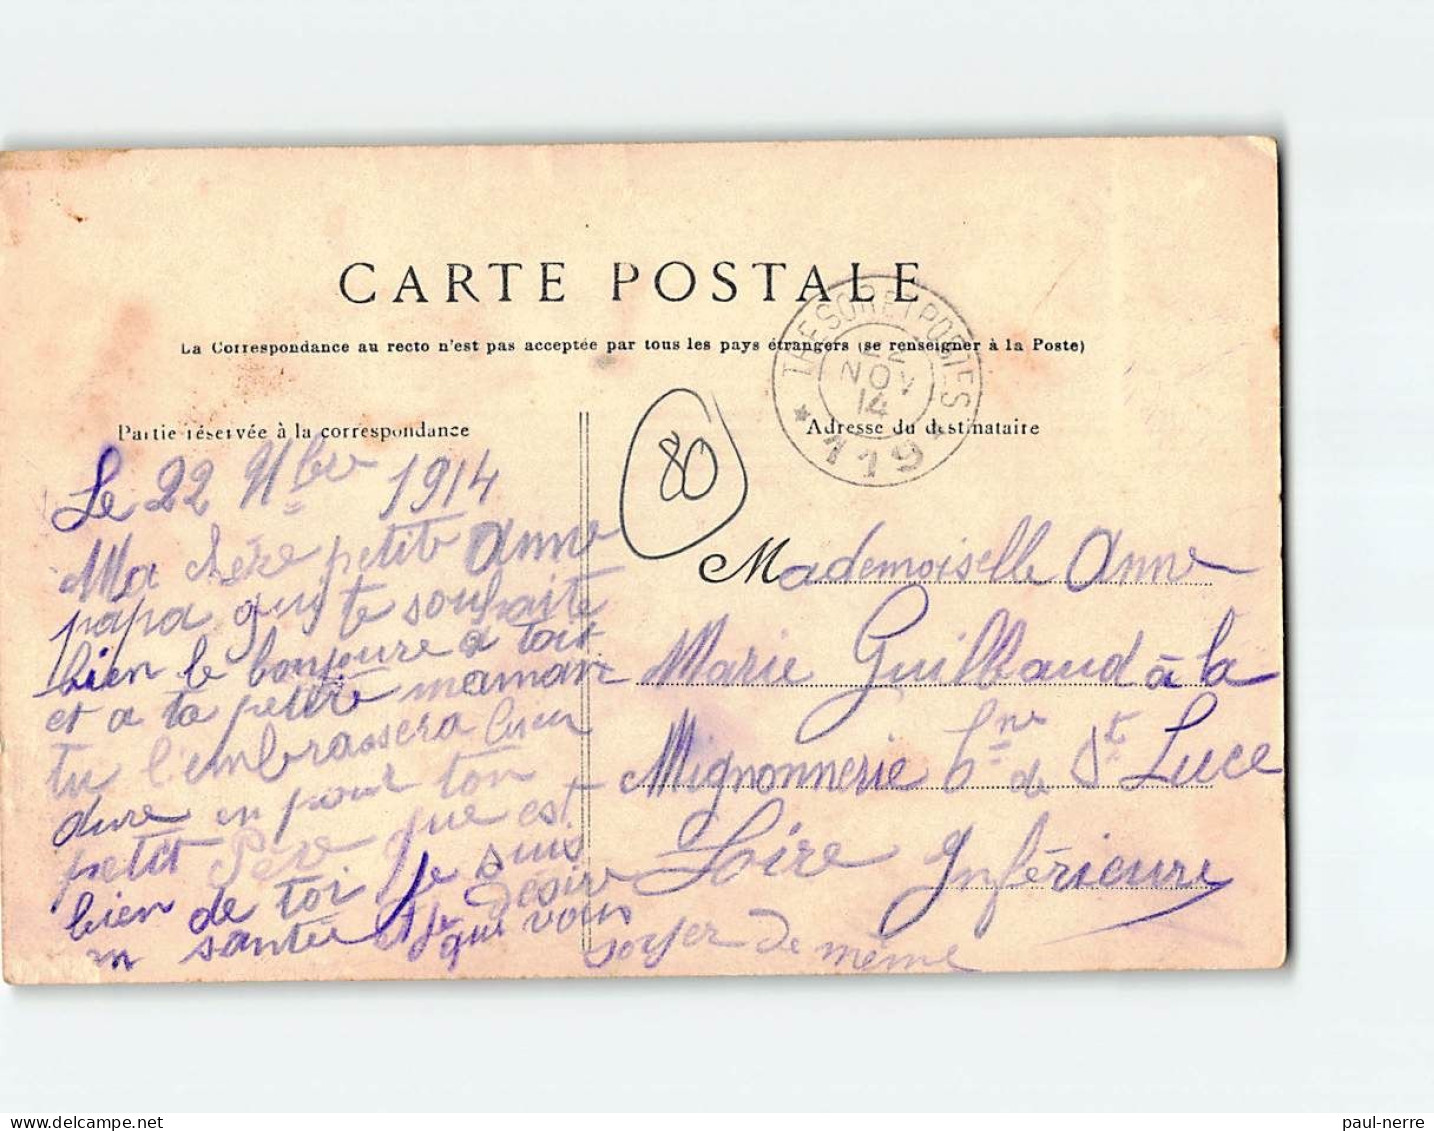 CARTE POSTALE
La Correspondance au recto n'est pas acceptée par tous les pays étrangers (se renseigner à la Poste)
TRESOR ET POSTES
22
NOV
14
* 119 *
Partie réservée à la correspondance
Adresse du destinataire
80
Le 22 Nbre 1914
Ma chére petite Anne
papa qui te souhaite
bien le bonjoure a toit
et a ta petite maman
tu l'embrassera bien
dure en pour ton
petit Père que est
bien de toi je suis
en santée et je désire
que vous
soyer de même
Mademoiselle Anne
Marie Guilbaud à la
Mignonnerie Cne de St Luce
Loire Inférieure
paul-nerre